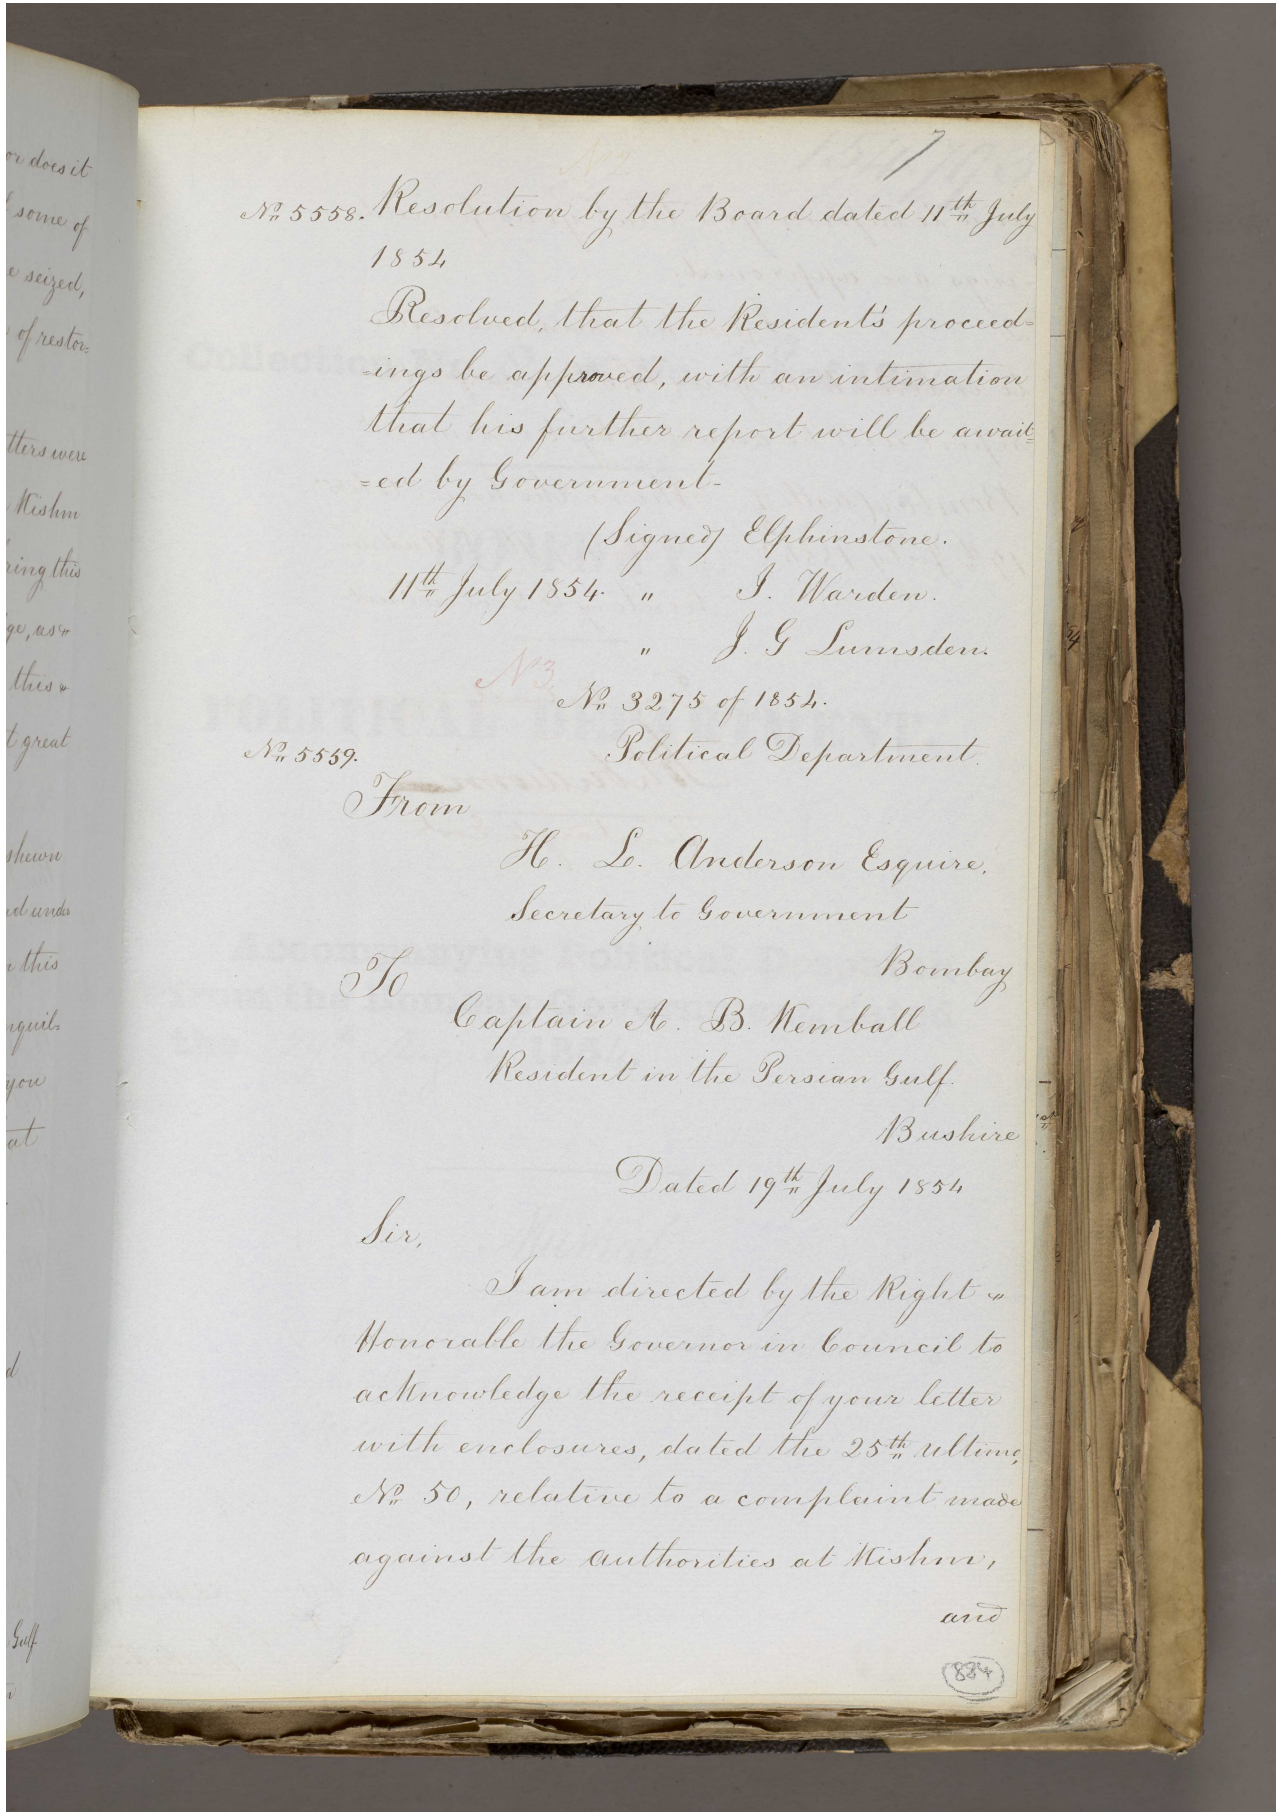 or does it
some of
e seized,
of restor=
tters were
Kishm
ring this
ge, as
this
t great
shewn
nd under
this
nquil=
you
at
d
Gulf
7
No. 5558. Resolution by the Board dated 11th July
1854
Resolved, that the Resident's proceed=
=ings be approved, with an intimation
that his further report will be await=
=ed by Government-
(Signed) Elphinstone.
11th July 1854. " J. Warden.
" J. G Lumsden.
N3
No. 3275 of 1854.
No. 5559. Political Department.
From
H. L. Anderson Esquire,
Secretary to Government
Bombay
To
Captain A. B. Kemball
Resident in the Persian Gulf.
Bushire
Dated 19th July 1854
Sir,
I am directed by the Right "
Honorable the Governor in Council to
acknowledge the receipt of your letter
with enclosures, dated the 25th ultimo,
No. 50, relative to a complaint made
against the authorities at Kishm,
and
884